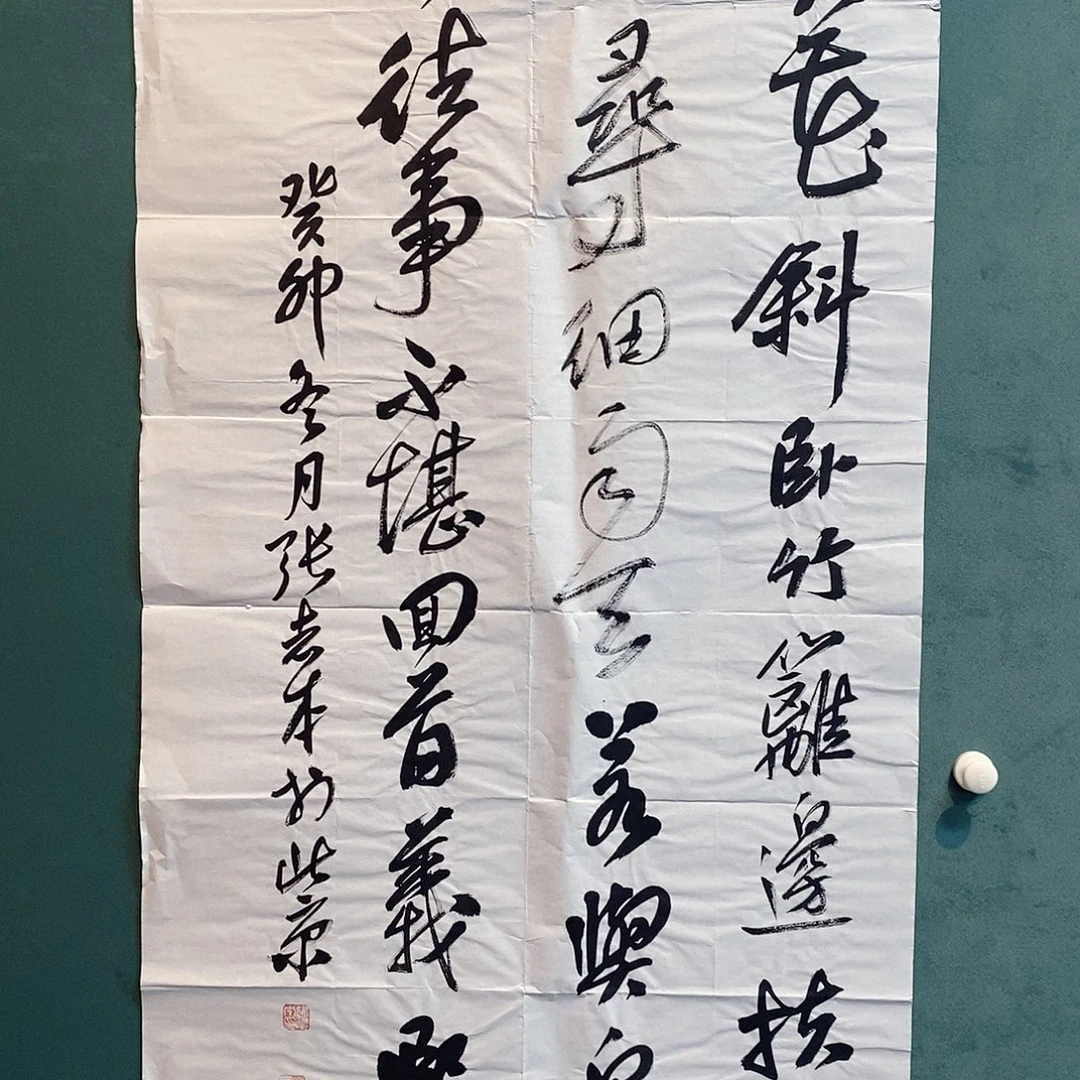 花斜卧竹籬邊扶
尋細雨天若與白
往事不堪回首義
癸卯冬月張志本於北京